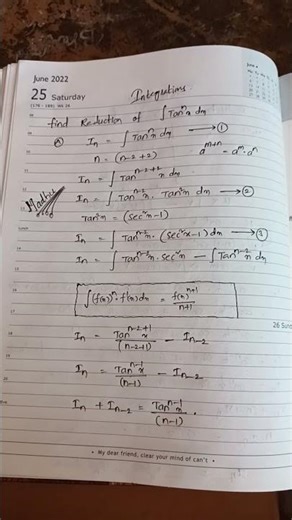 June 2022
25 Saturday
Integrations
find Reduction of ∫Tanⁿx dx
Ⓐ Iₙ = ∫Tanⁿx dx → ①
n = (n-2+2)
a^(m+n) = a^m · a^n
Iₙ = ∫Tan^(n-2+2)x dx
Iₙ = ∫Tan^(n-2)x · Tan²x dx → ②
Madhu
Tan²x = (sec²x-1)
Iₙ = ∫Tan^(n-2)x · (sec²x-1) dx → ③
Iₙ = ∫Tan^(n-2)x · sec²x - ∫Tan^(n-2)x dx
∫(f(x))ⁿ · f'(x) dx = f(x)^(n+1) / n+1
26 Sund
Iₙ = Tan^(n-2+1)x / (n-2+1) - Iₙ₋₂
Iₙ = Tan^(n-1)x / (n-1) - Iₙ₋₂
Iₙ + Iₙ₋₂ = Tan^(n-1)x / (n-1) .
• My dear friend, clear your mind of can't •